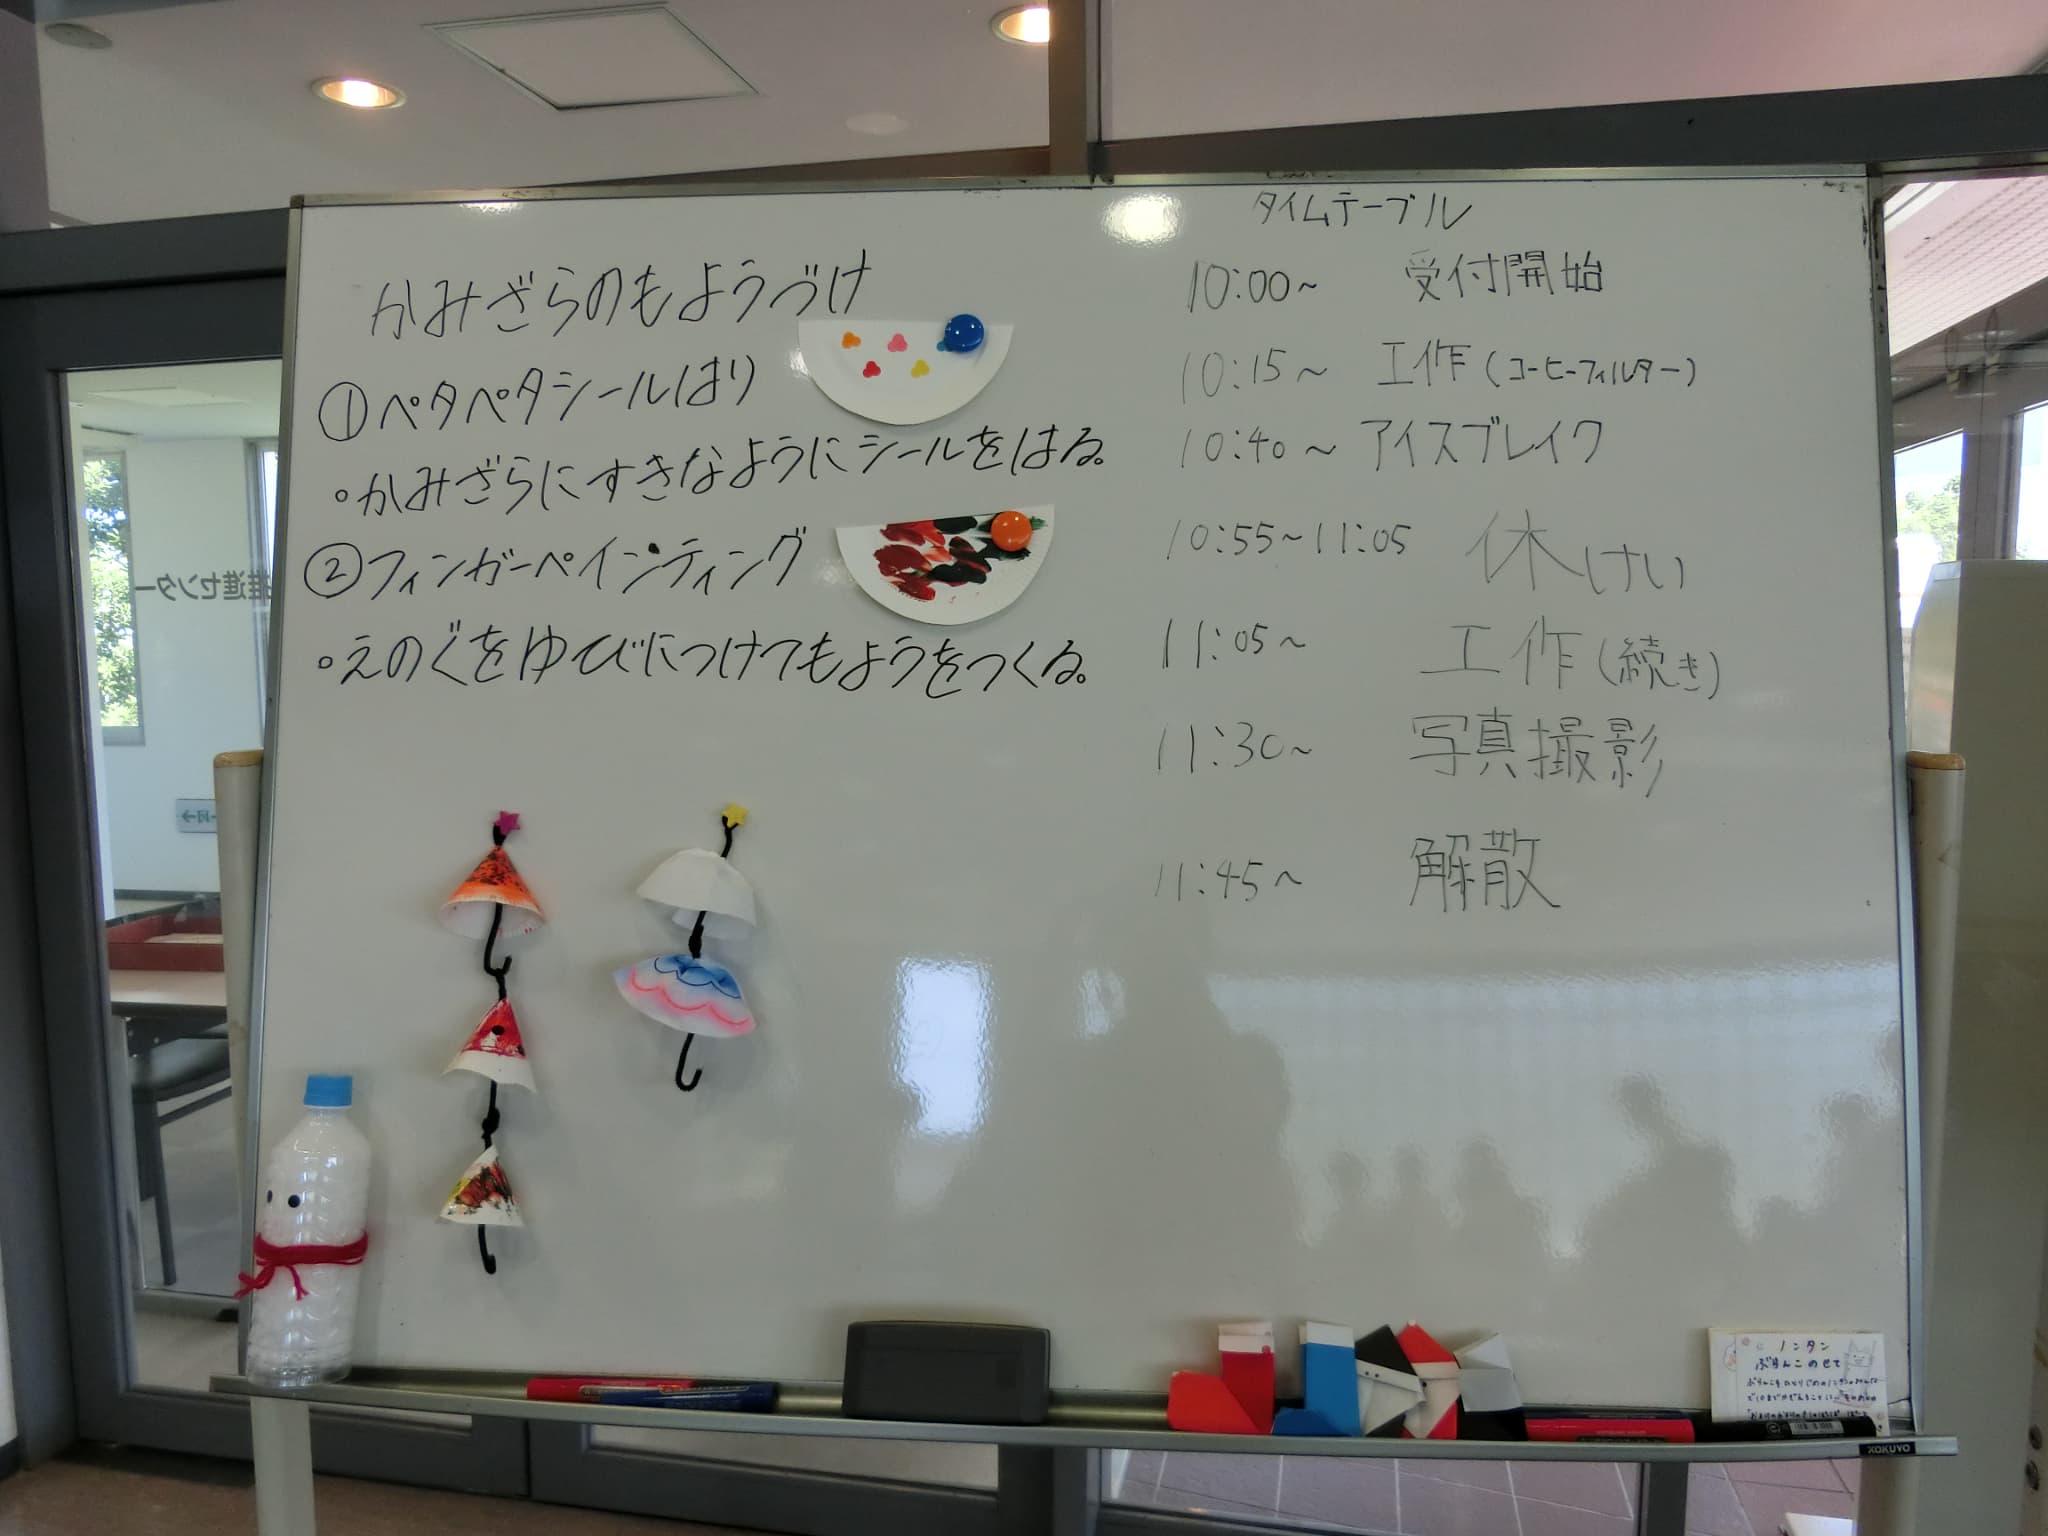 かみざらのもようづけ
①ペタペタシールはり
・かみざらにすきなようにシールをはる。
②フィンガーペインティング
・えのぐをゆびにつけてもようをつくる。
タイムテーブル
10:00~ 受付開始
10:15~ 工作(コーヒーフィルター)
10:40~ アイスブレイク
10:55~11:05 休けい
11:05~ 工作(続き)
11:30~ 写真撮影
11:45~ 解散
推進センター
ノンタン
ぶらんこのせて
KOKUYO